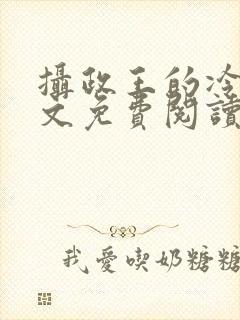 攝政王的冷
文免費閱讀
我愛喫奶糖糖